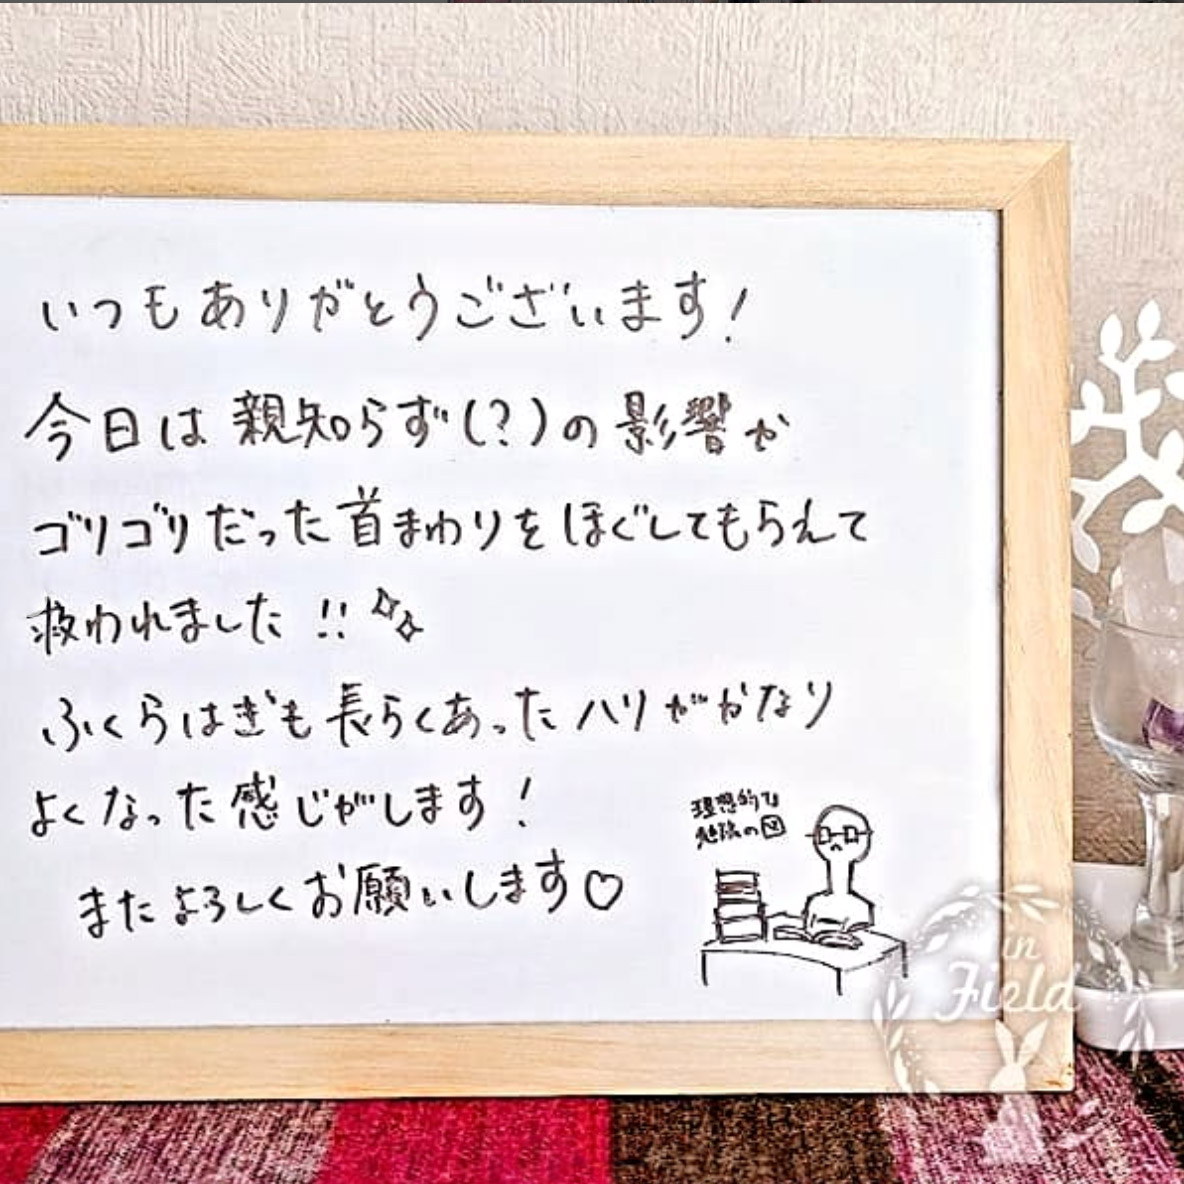 いつもありがとうございます!
今日は親知らず(?)の影響か
ゴリゴリだった首まわりをほぐしてもらえて
救われました!!
ふくらはぎも長らくあったハリがかなり
よくなった感じがします!
またよろしくお願いします♡
理想的な
勉強の図
in
Field